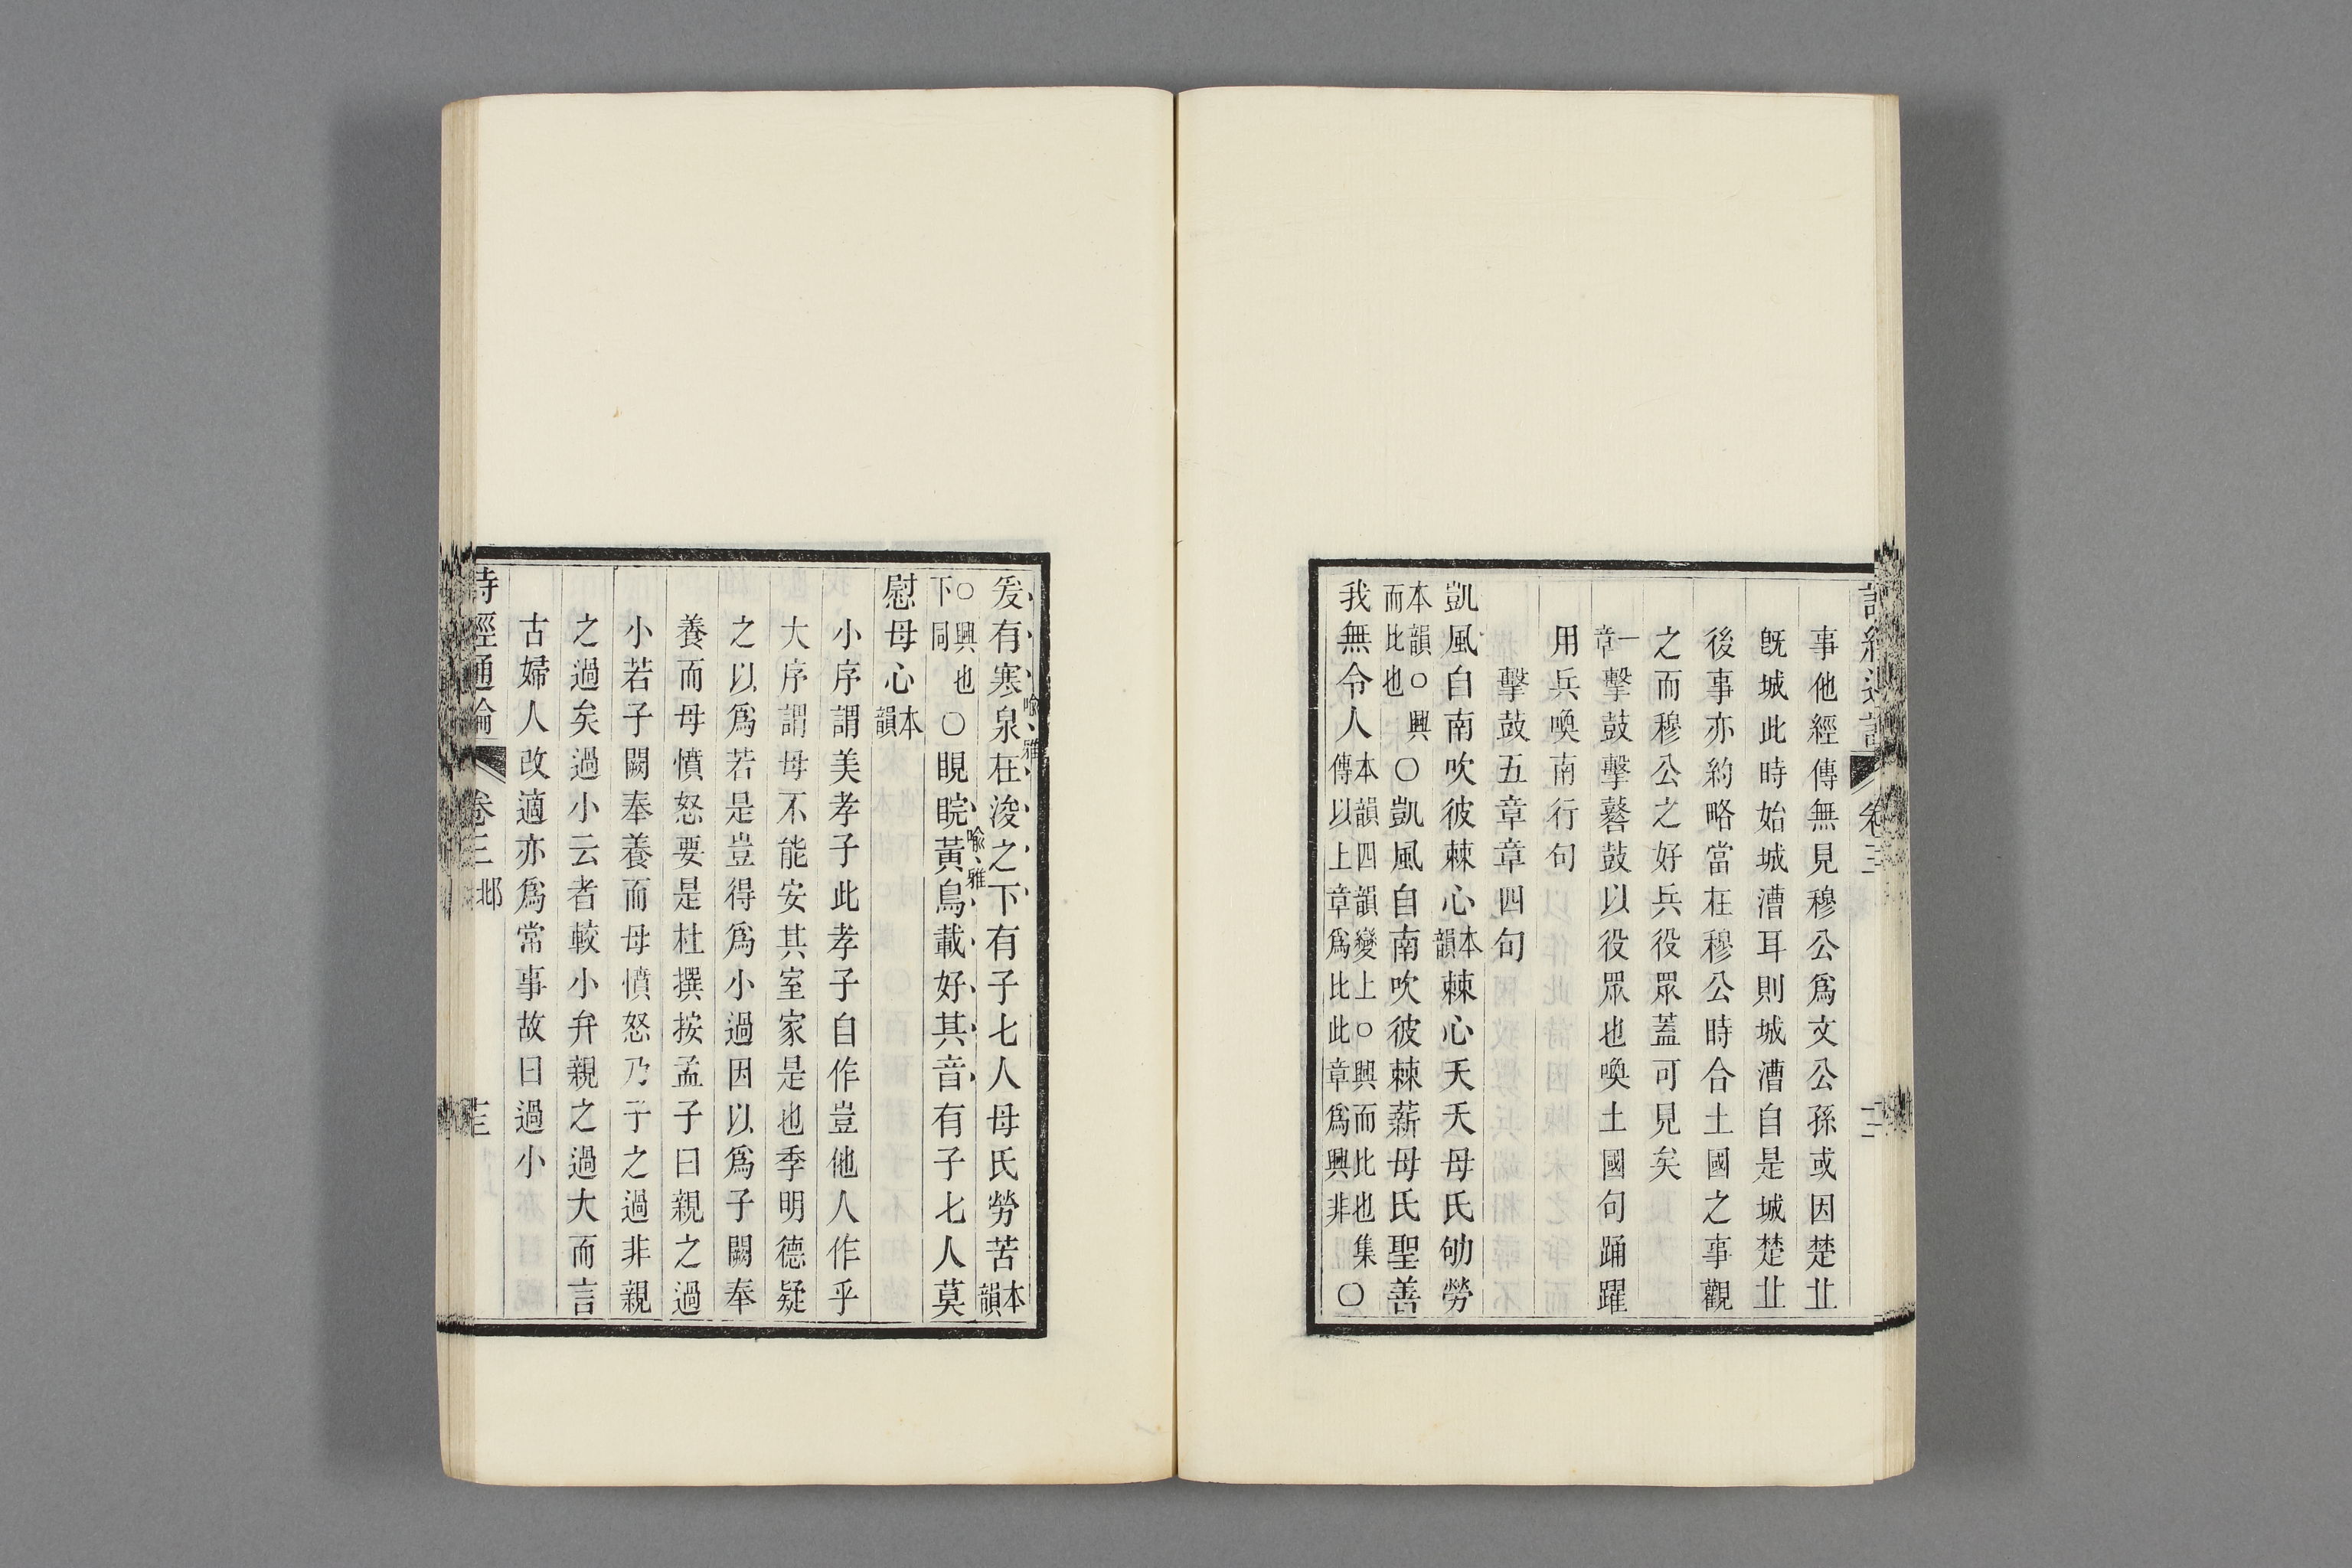 詩經通論 卷三 十二
事他經傳無見穆公爲文公孫或因楚丠
旣城此時始城漕耳則城漕自是城楚丠
後事亦約略當在穆公時合土國之事觀
之而穆公之好兵役眾蓋可見矣
一章擊鼓擊鼛鼓以役眾也喚土國句踊躍
用兵喚南行句
擊鼓五章章四句
凱風自南吹彼棘心本韻棘心夭夭母氏劬勞
本韻○興而比也○凱風自南吹彼棘薪母氏聖善
我無令人本韻四韻變上○興而比也集傳以上章爲比此章爲興非○
爰有寒泉在浚之下有子七人母氏勞苦本韻
喻、雅
○興也下同○睍睆黃鳥載好其音有子七人莫
喻、雅
慰母心本韻
小序謂美孝子此孝子自作豈他人作乎
大序謂母不能安其室家是也季明德疑
之以爲若是豈得爲小過因以爲子闕奉
養而母憤怒要是杜撰按孟子曰親之過
小若子闕奉養而母憤怒乃子之過非親
之過矣過小云者較小弁親之過大而言
古婦人改適亦爲常事故曰過小
詩經通論 卷三 邶 十三